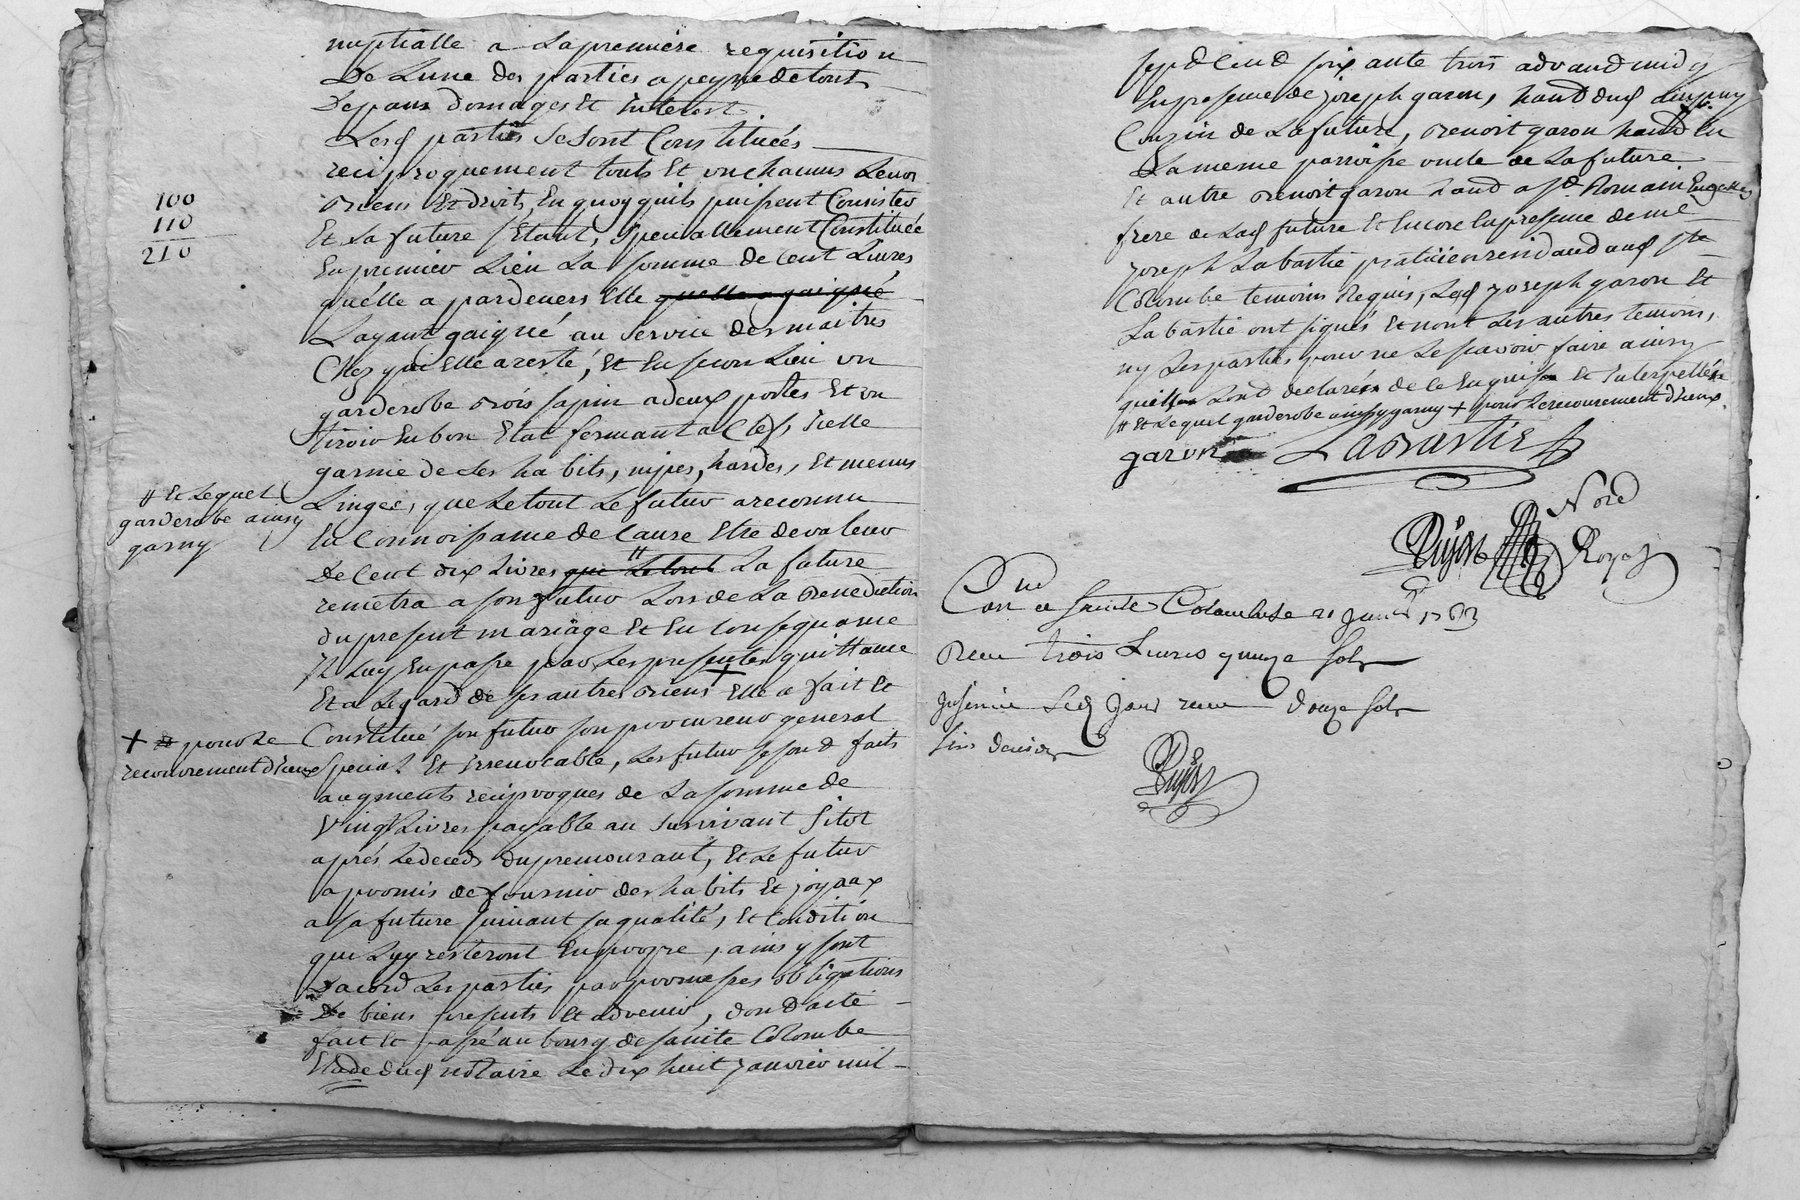 nuptialle a la premiere requisition
De Lune des parties a peyne de tout
Depans domages Et Interest
Lesd parties se sont Constituées
reciproquement touts Et un chacuns Leurs
Biens Et droits, En quoy quils puissent Consister
100
110
210
Et La future s'Etant, specialement Constituée
En premier Lieu La somme de cent Livres
quelle a pardevers Elle quelle a gaigné
Layant gaigné au service des maitres
Chez qui Elle a resté, Et En second Lieu un
garderobe bois sapin a deux portes Et un
tiroir En bon Etat fermant a Clef, Icelle
garnie de ses habits, nipes, hardes, Et menus
# Et Lequel
garderobe ainsy
garny
Linges, que Le tout Le futur a reconnu
En Connoissance de Cause Etre de valeur
De Cent dix Livres que Le tout # La future
remetra a son futur Lors de La Benediction
du present mariage Et En Consequance
Il Luy En passe par Les presentes quittance
Et a Legard de ses autres Biens + Elle a fait Et
+ pour Le
recouvrement diceux
Constitué son futur son procureur general
special Et Irrevocable, Les futur se sond faits
augments reciproques de La somme de
Vingt Livres payable au survivant sitot
aprés Le deceds du premourant, Et Le futur
a promis de fournir des habits Et joyaux
a sa future suivant sa qualité, Et Condition
que Luy resteront En propre, ainsy sont
Dacord Les parties par promesses obligations
De biens presents Et advenir, dond acte
fait Et passé au bourg de sainte Colombe
Etude dud notaire Le dix huit Janvier mil
sepd Cend soix ante trois advand midy
En presence de joseph garon, hand dud
Couzin de La future, Benoit garon hand En
La meme parroisse oncle de La future
Et autre Benoit garon hand a St Romain
frere de Lad future Et Encore En presence de me
Joseph Labastie praticien residand aud ste
Colombe temoins Requis, Lesd Joseph garon Et
Labastie ont signés Et non Les autres temoins,
ny Les parties pour ne Le sçavoir faire ainsy
quils sond declarés de ce Enquis Et Interpellés
# Et Lequel garderobe ainsy garny + pour Le recouvrement diceux
garon Labastie
Nore
Royal
Conle a Sainte Colombe 21 Janv 1763
Receu trois Livres quinze sols
Insinué Led Jour receu douze sols
six deniers